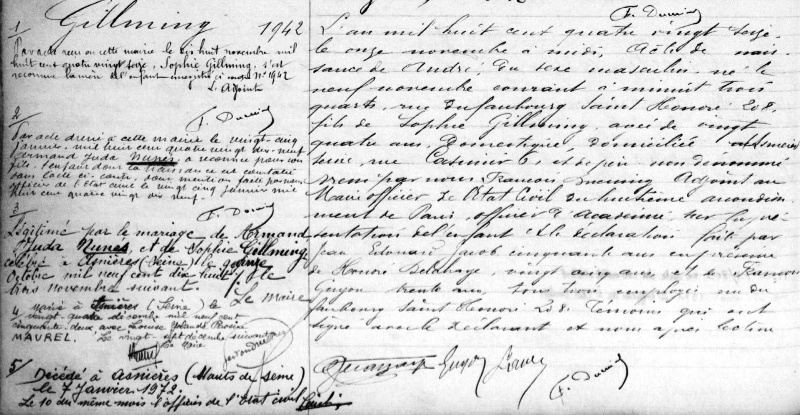 Gillming 1942
1
Par acte reçu en cette mairie le dix huit novembre mil
huit cent quatre vingt seize, Sophie Gillming, s'est
reconnue la mère de l'enfant inscrit ci contre N° 1942
L'Adjoint
2
Par acte dressé à cette mairie le vingt-cinq
janvier mil huit cent quatre vingt dix-neuf
Armand Juda Nunès a reconnu pour son
fils l'enfant dont la naissance est constatée
dans l'acte ci-contre, dont mention faite par nous
officier de l'état civil le vingt cinq janvier mil
huit cent quatre vingt dix neuf
3
Légitimé par le mariage de Armand
Juda Nunes, et de Sophie Gillming,
célébré à Asnières (Seine) le
Octobre mil neuf cent dix huit le
trois novembre suivant.
Le Maire
4 Marié à Asnières (Seine) le
vingt quatre décembre mil neuf cent
cinquante deux avec Louise Yolande Rosine
MAUREL. Le vingt sept décembre suivant
Le Maire
5 Décédé à Asnières (Hauts de Seine)
le 7 Janvier 1972.
Le 10 du même mois l'officier de l'Etat civil
L'an mil huit cent quatre vingt seize,
le onze novembre à midi, Acte de nais-
sance de André, du sexe masculin, né le
neuf novembre courant à minuit trois
quarts, rue du faubourg Saint Honoré 208,
fils de Sophie Gillming, âgée de vingt
quatre ans, domestique, domiciliée Asnières
Seine, rue Casimir 6 et de père non dénommé
Dressé par nous, François Adjoint au
Maire officier de l'Etat Civil du huitième arrondisse-
ment de Paris, officier d'Académie, sur la pré-
sentation de l'enfant et la déclaration faite par
Jean Edouard Jacob cinquante ans en présence
de Honoré vingt cinq ans et de François
Guyon trente ans, tous trois employés rue du
faubourg Saint Honoré 208. Témoins qui ont
signé avec le déclarant et nous après lecture
Guyon